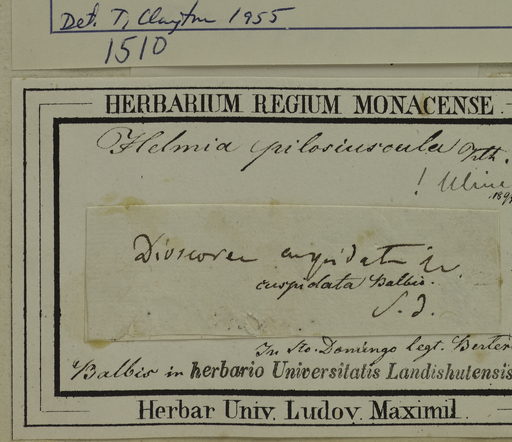 Det. T. Clayton 1955
1510
HERBARIUM REGIUM MONACENSE
Helmia pilosiuscula Kth.
! Uline
Dioscorea cuspidata
cuspidata Balbis.
S. d.
In Sto. Domingo legt. Berter
Balbis in herbario Universitatis Landishutensis
Herbar Univ. Ludov. Maximil.